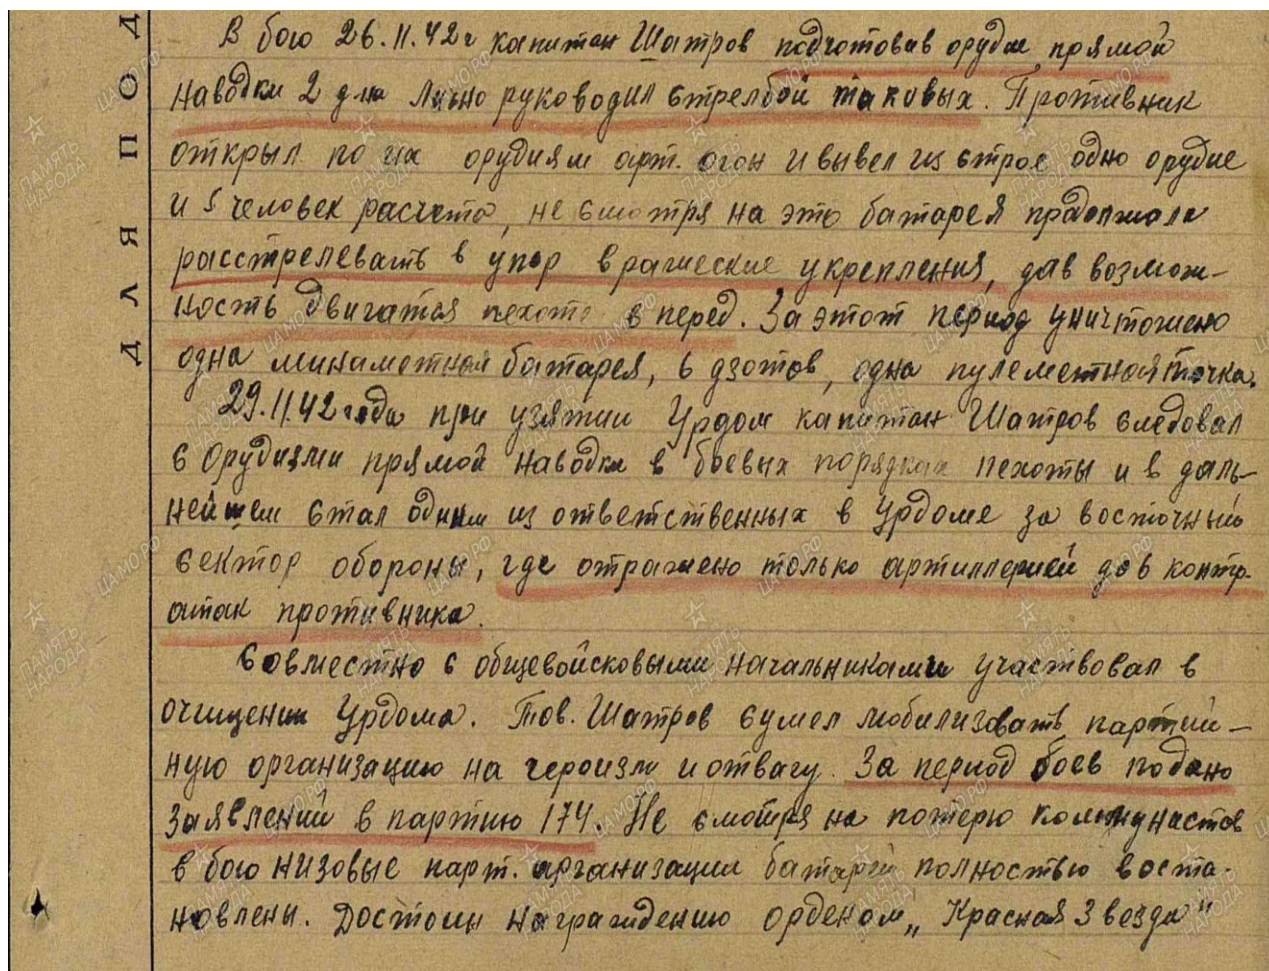 В бою 26.11.42г капитан Шатров подготовив орудие прямой
наводки 2 дня лично руководил стрелбой таковых. Противник
открыл по их орудиям арт. огон и вывел из строя одно орудие
и 5 человек расчета, не смотря на это батарея продолжала
расстрелевать в упор вражеские укрепления, дав возмож-
ность двигатся пехоте в перед. За этот период уничтожено
одна минаметная батарея, 6 дзотов, одна пулеметная точка.
29.11.42 года при узятии Урдом капитан Шатров следовал
с орудиями прямой наводки в боевых порядках пехоты и в даль-
нейшем стал одним из ответственных в Урдоме за восточный
сектор обороны, где отражено только артиллерией до 6 контр-
атак противника.
Совместно с общевойсковыми начальниками участвовал в
очищении Урдома. Тов. Шатров сумел мобилизовать партий-
ную организацию на героизм и отвагу. За период боев подано
заявлений в партию 174. Не смотря на потерю коммунистов
в бою низовые парт. организации батарей полностью воста-
новлены. Достоин награждению орденом „Красная Звезда"
ДЛЯ ПОД
ПАМЯТЬ НАРОДА
ЦАМО.РФ